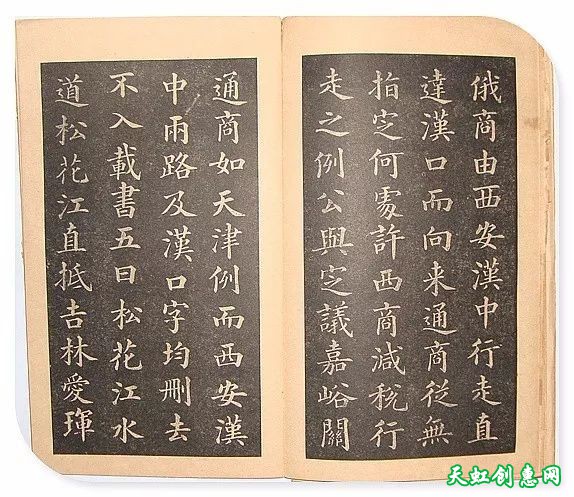 俄商由西安漢中行走直
達漢口而向来通商從無
指定何處許西商減稅行
走之例公與定議嘉峪關
通商如天津例而西安漢
中兩路及漢口字均刪去
不入載書五曰松花江水
道松花江直抵吉林愛琿
天虹创意网